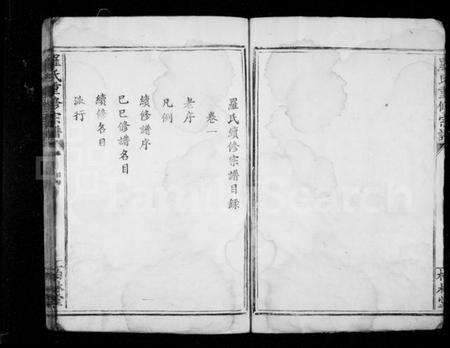 羅氏續修宗譜目錄
卷一
老序
凡例
續修譜序
己巳修譜名目
續修名目
派行
羅氏重修宗譜
FamilySearch